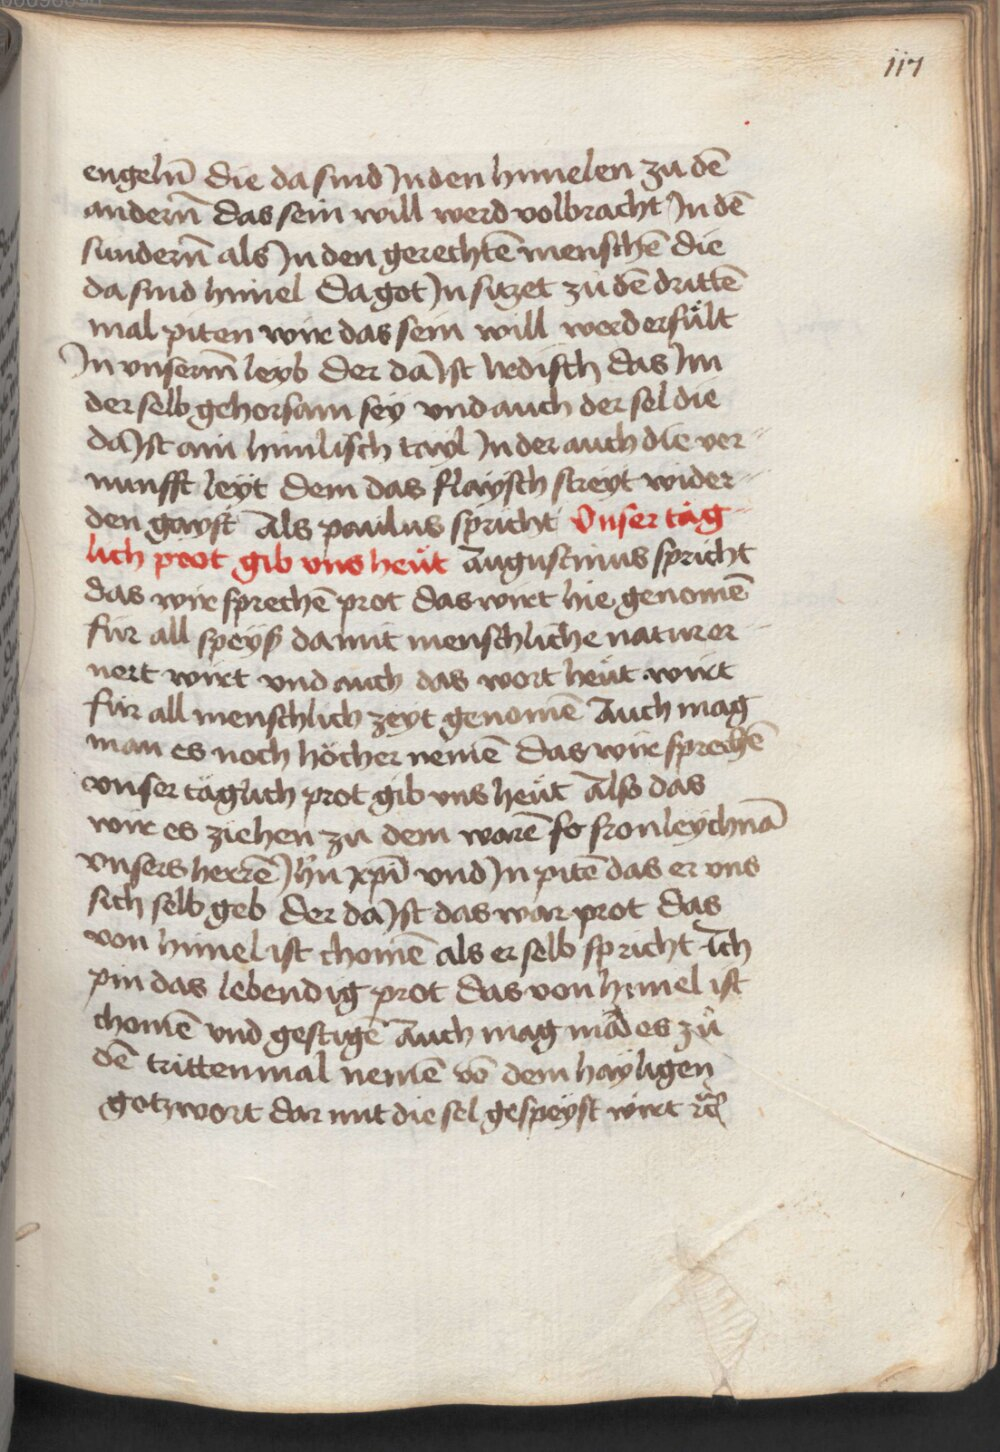 117
engelñ die da sind Jn den himelen zu dē
anderñ das sein will werd volbracht Jn dē
sunderñ als Jn den gerechtē menschē die
da sind himel da got Jn sitzet zu dē drittē
mal piten wir das sein will werd erfült
Jn vnserm̄ leyb der da Jst Irdisch das Im
der selb gehorsam sey vnd auch der sel die
da Jst ain himlisch tayl Jn der auch die ver
nunfft leyt dem das flaysch streyt wider
den gayst Als paulus spricht Vnser täg
lich prot gib vns heut Augustinus spricht
das wir sprechē prot das wirt hie genomē
für all speyß da mit menschliche natur er
nert wirt vnd auch das wort heut wirt
für all menschlich zeyt genomē Auch mag
man es noch höcher nemē das wir sprechē
vnser täglich prot gib vns heut Also das
wir es ziehen zu dem warē fronleychnā
vnsers herrē Jhū xpī vnd Jn pitē das er vns
sich selb geb der da Jst das war prot das
von himel ist chomē als er selb spricht Ich
pin das lebendig prot das von himel ist
chomē vnd gestigē Auch mag mā es zů
dē tritten mal nemē vō dem hayligen
gotzwort dar mit die sel gespeyst wirt